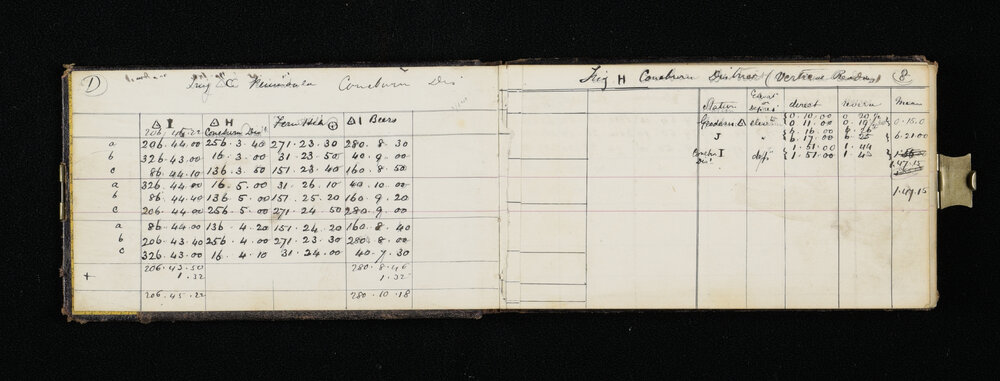 D Trig C Peninsula Coneburn Dis
△ I △ H Fern Hill ⊙ △ I Bears
206.45.22 Coneburn Dist
a 206.44.00 256.3.40 271.23.30 280.8.30
b 326.43.00 16.3.00 31.23.50 40.9.00
c 86.44.10 136.3.50 151.23.40 160.8.50
a 326.44.00 16.5.00 31.26.10 40.10.00
b 86.44.40 136.5.00 151.25.20 160.9.20
c 206.44.00 256.5.00 271.24.50 280.9.00
a 86.44.00 136.4.20 151.24.20 160.8.40
b 206.43.40 256.4.00 271.23.30 280.8.00
c 326.43.00 16.4.10 31.24.00 40.7.30
206.43.50 280.8.46
+ 1.32 1.32
206.45.22 280.10.18
Trig H Coneburn District (Vertical Readings) 8
Station direct reverse mean
0.10.00
0.11.00 0.15.0
J " 6.16.00
6.17.00 6.25 6.21.00
I dep 1.51.00 1.44
Dist 1.51.00 1.43
1.47.15
1.47.15